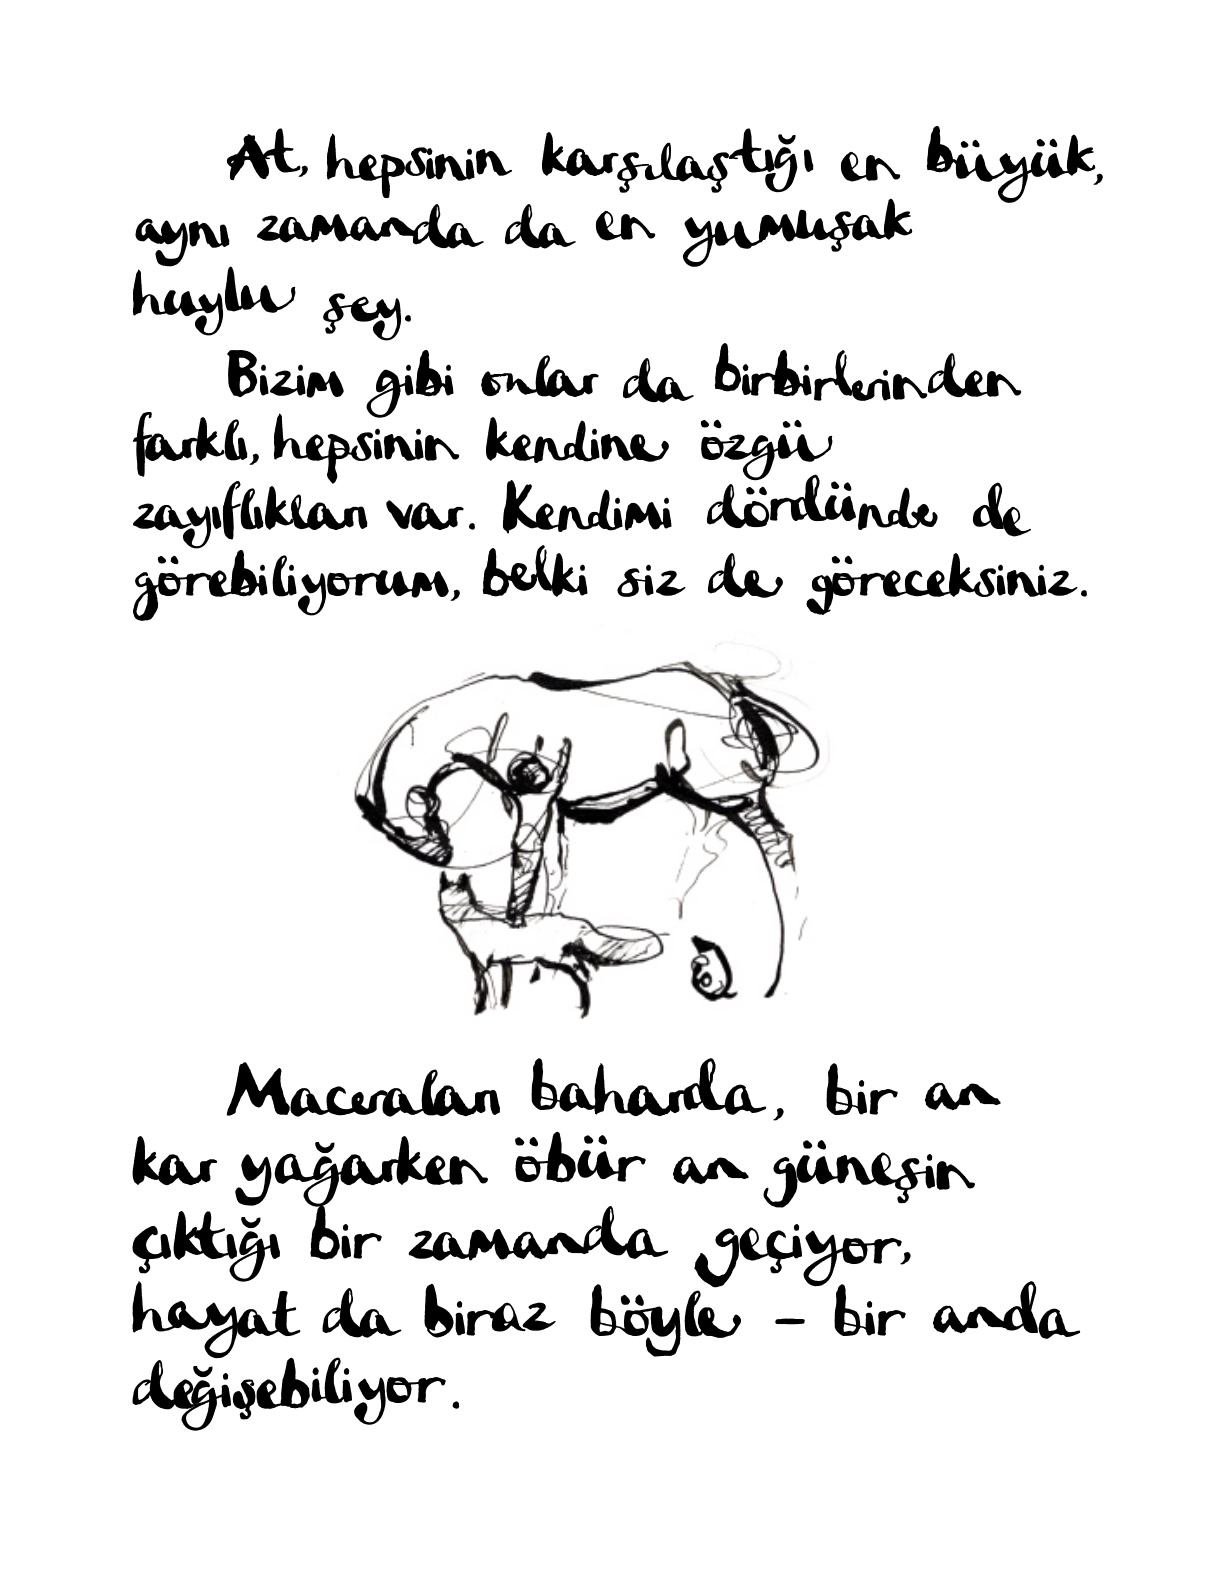 At, hepsinin karşılaştığı en büyük,
aynı zamanda da en yumuşak
huylu şey.
Bizim gibi onlar da birbirlerinden
farklı, hepsinin kendine özgü
zayıflıkları var. Kendimi dördünde de
görebiliyorum, belki siz de göreceksiniz.
Maceraları baharda, bir an
kar yağarken öbür an güneşin
çıktığı bir zamanda geçiyor,
hayat da biraz böyle – bir anda
değişebiliyor.